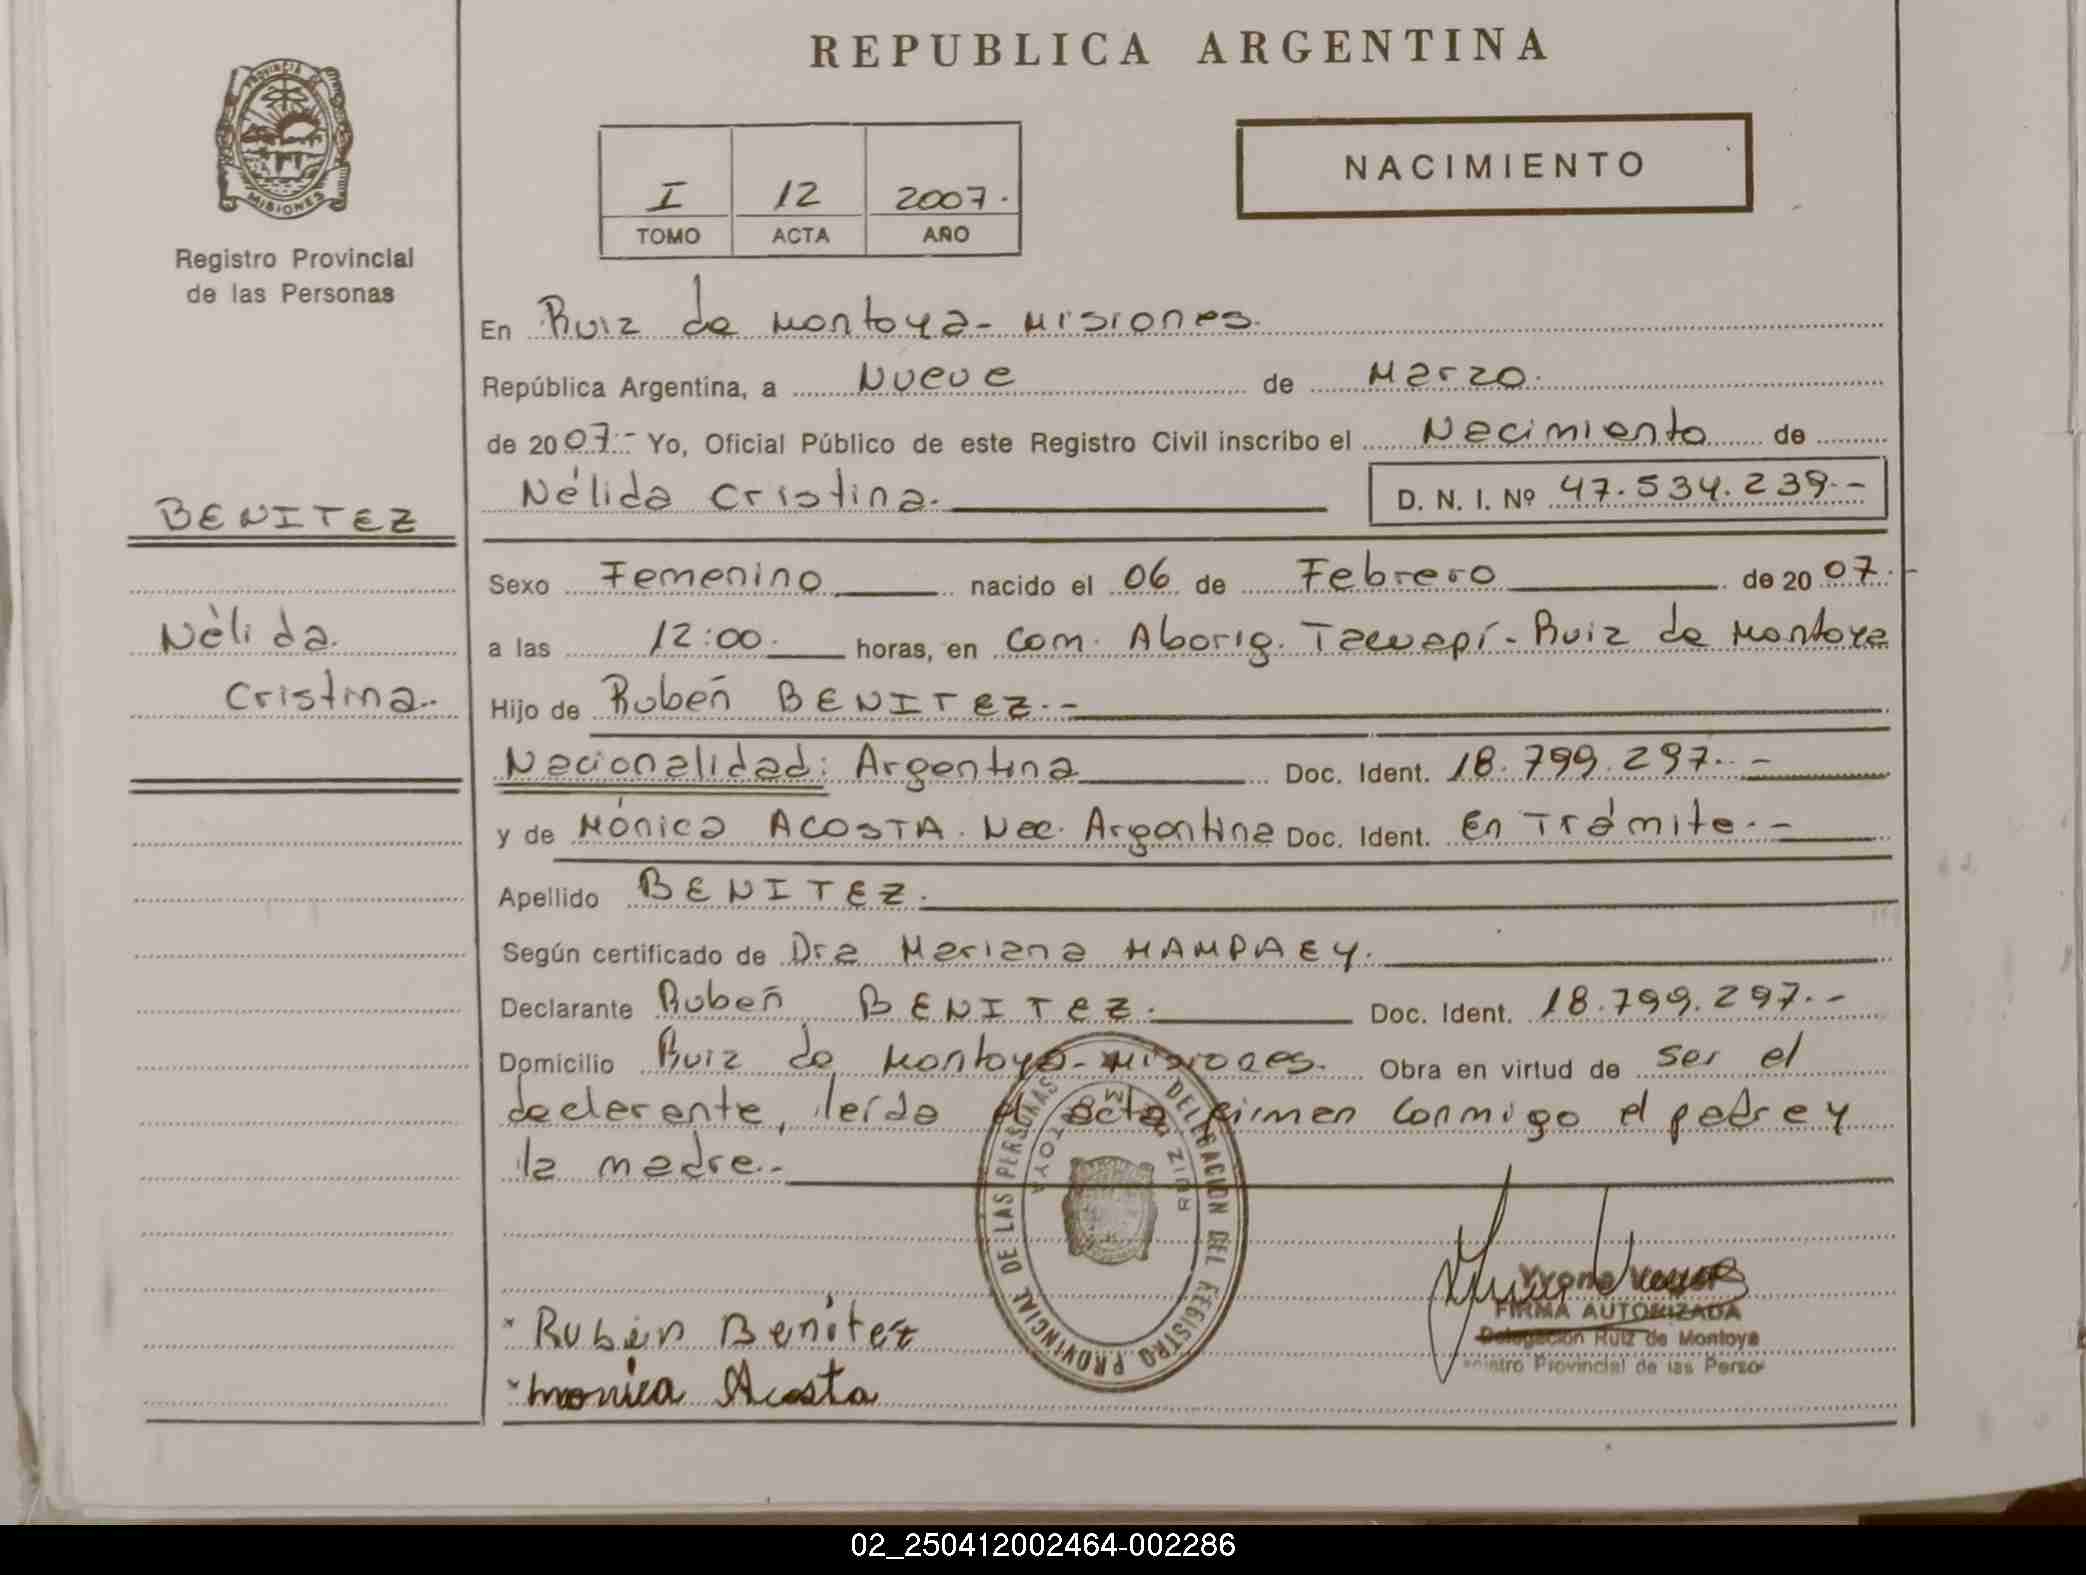 REPUBLICA ARGENTINA
PROVINCIA DE
MISIONES
Registro Provincial
de las Personas
I 12 2007.
TOMO ACTA AÑO
NACIMIENTO
En Ruiz de Montoya - Misiones.
República Argentina, a Nueve de Marzo.
de 2007.- Yo, Oficial Público de este Registro Civil inscribo el Nacimiento de
Nélida Cristina. D. N. I. Nº 47.534.239.-
BENITEZ
Nélida
Cristina.
Sexo Femenino nacido el 06 de Febrero de 2007.-
a las 12:00. horas, en Com. Aborig. Tacuapí - Ruiz de Montoya
Hijo de Rubén BENITEZ.-
Nacionalidad: Argentina Doc. Ident. 18.799.297.-
y de Mónica ACOSTA. Nac. Argentina Doc. Ident. En Trámite.-
Apellido BENITEZ.
Según certificado de Dra Mariana HAMPAEY.
Declarante Rubén BENITEZ. Doc. Ident. 18.799.297.-
Domicilio Ruiz de Montoya - Misiones. Obra en virtud de ser el
declarante, leída el acta firman conmigo el padre y
la madre.-
DELEGACION DEL REGISTRO PROVINCIAL DE LAS PERSONAS
RUIZ DE MONTOYA
Yvone
FIRMA AUTORIZADA
Delegación Ruiz de Montoya
Provincial de las Perso
* Rubén Benitez
* monica Acosta
02_250412002464-002286